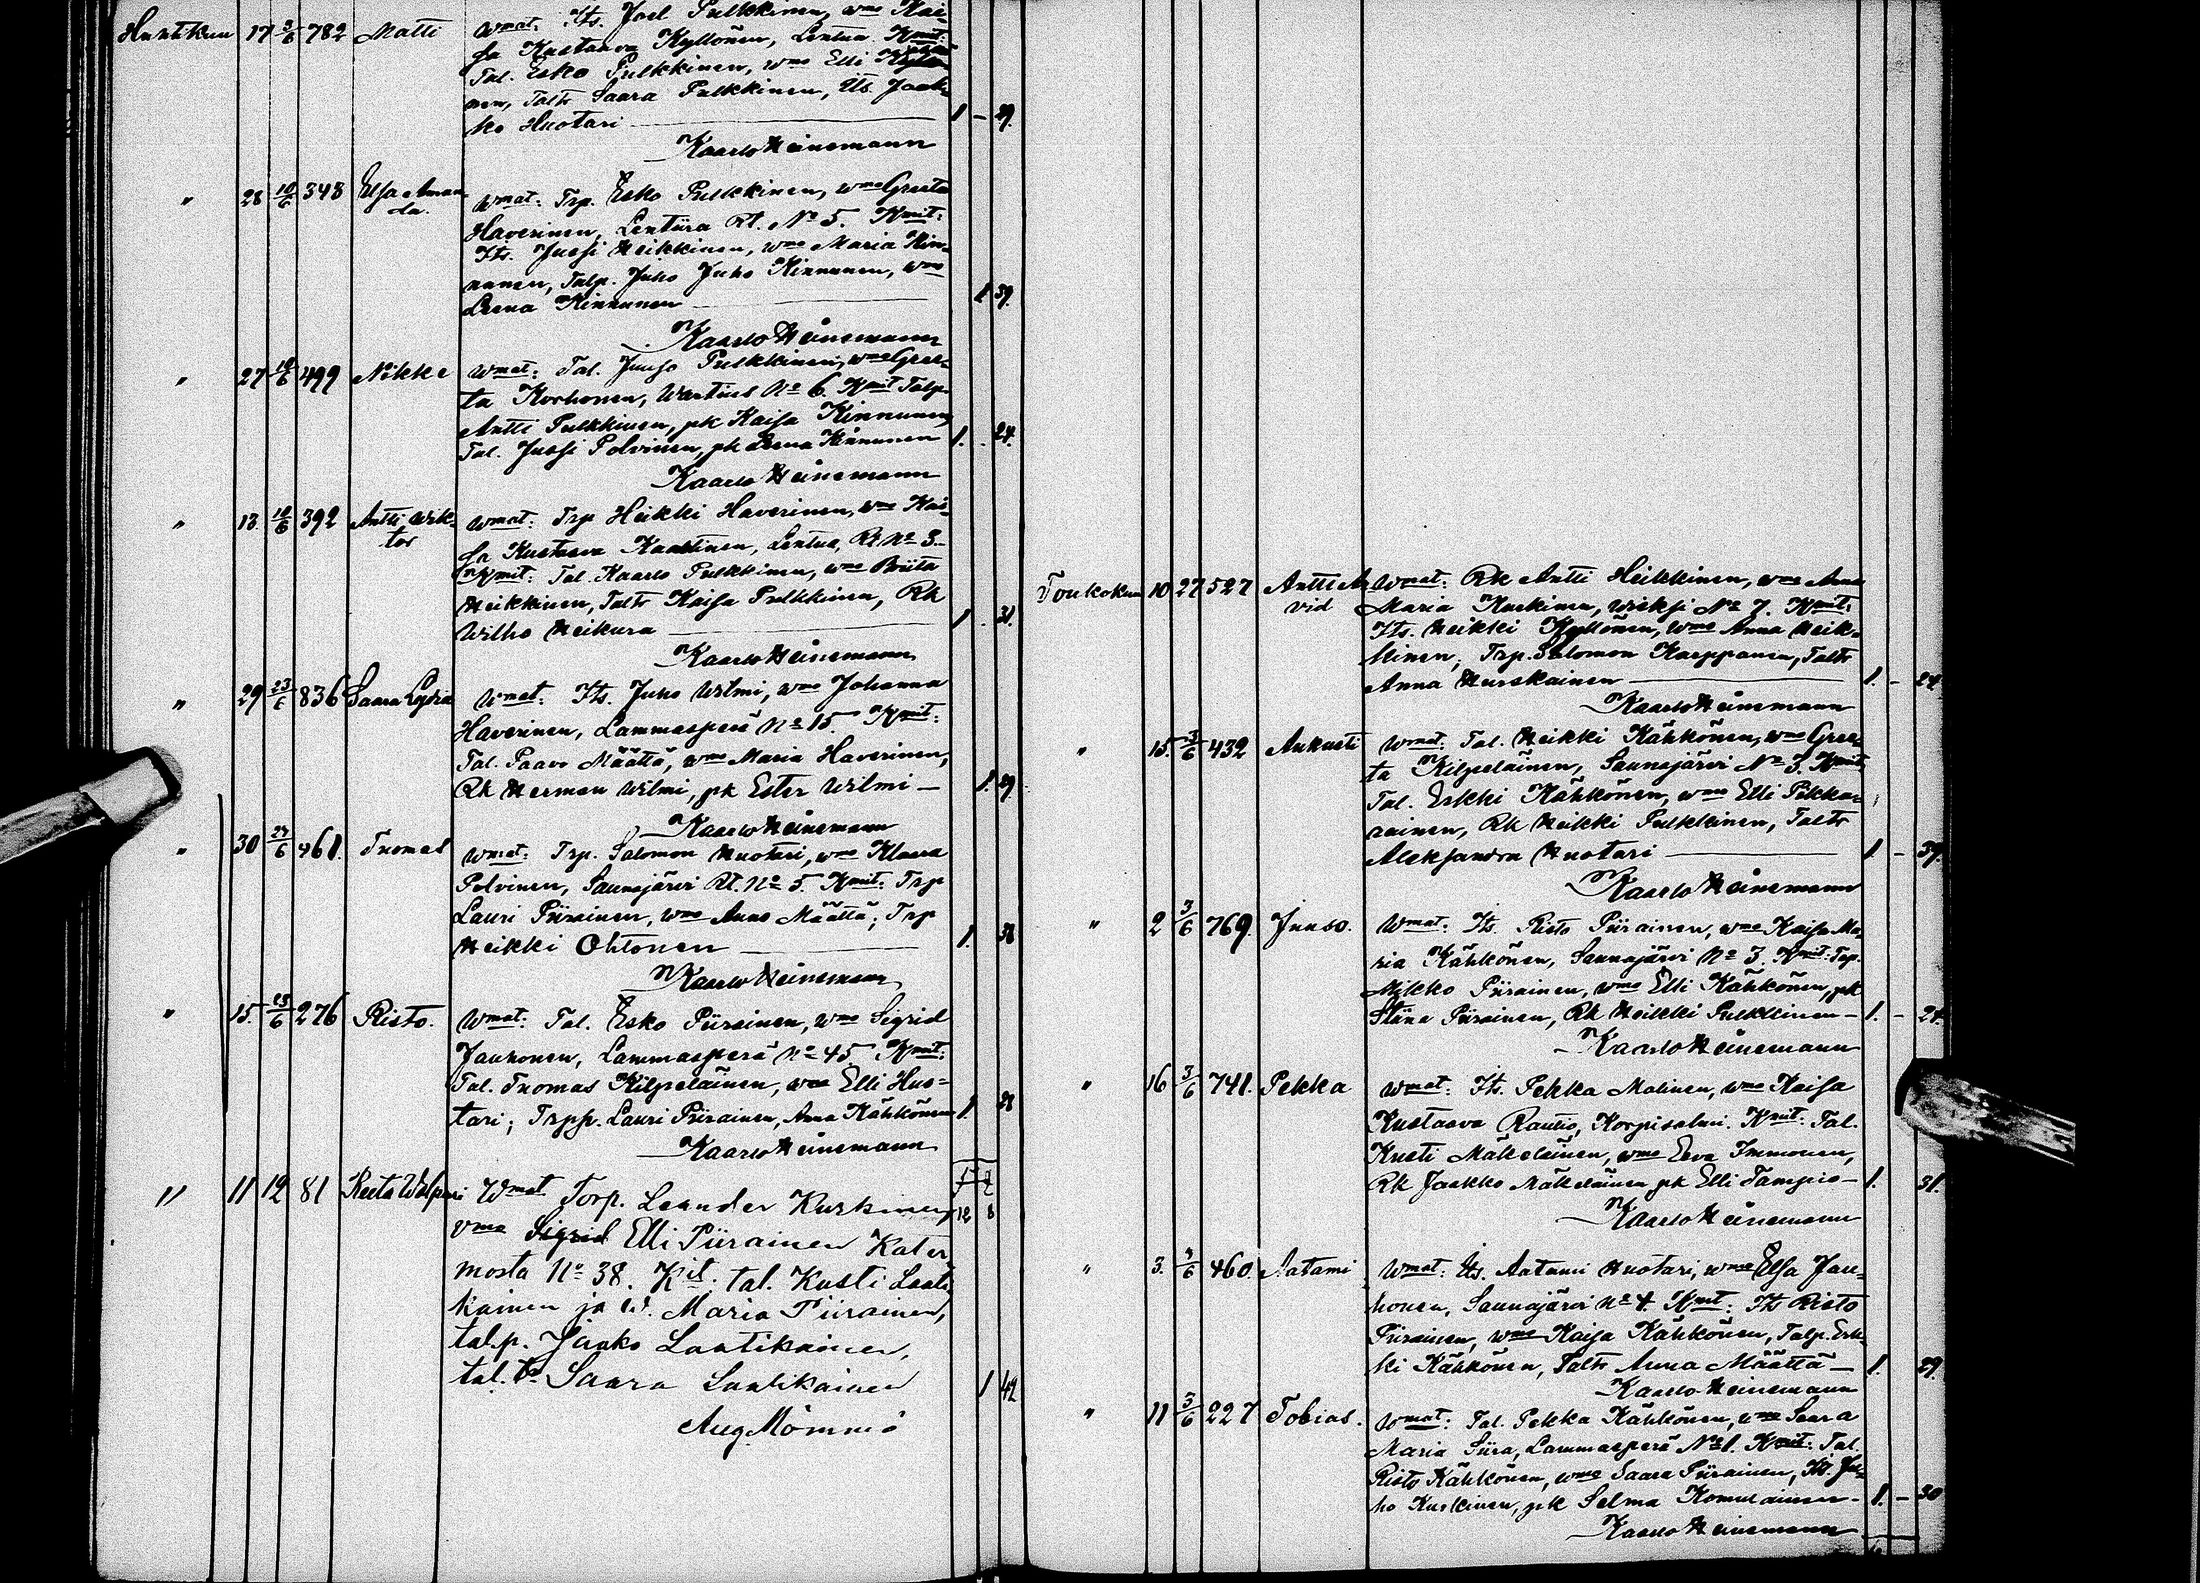 Huhtikuu 17 3/6 782 Matti Wmat: Its. Joel Pulkkinen, wmo Kai-
sa Kustaava Kyllönen, Lentua. Kmit:
Tal. Esko Pulkkinen, wmo Elli
nen, Taltr Saara Pulkkinen, Its. Jaak-
ko Huotari 1 - 29.
Kaarlo Heinemann
" 28 10/6 348 Elsa Aman-
da. Wmat: Trp. Esko Pulkkinen, wmo Greeta
Haverinen, Lentiira Rt. No 5. Kmit:
Its. Jussi Heikkinen, wmo Maria Kin-
nunen, Talp. Juho Juho Kinnunen, wmo
Leena Kinnunen 1 39.
Kaarlo Heinemann
" 27 10/6 499 Mikke Wmat: Tal. Juuso Pulkkinen, wmo Gree-
ta Korhonen, Wartius No 6. Kmit Talp.
Antti Pulkkinen, pk Kaisa Kinnunen,
Tal. Jussi Polvinen, pk Leena Kinnunen 1. 24.
Kaarlo Heinemann
" 13. 10/6 392 Antti Wik-
tor Wmat: Trp Heikki Haverinen, wmo Kai-
sa Kustaava Kaartinen, Lentua, Rt No 3.
Kmit: Tal. Kaarlo Pulkkinen, wmo Briita
Heikkinen, Taltr Kaisa Pulkkinen, Rk
Wilho Heikura 1 31.
Kaarlo Heinemann
" 29 23/6 836 Saara Lydia Wmat: Its. Juho Wilmi, wmo Johanna
Haverinen, Lammasperä No 15. Kmit:
Tal. Paavo Määttä, wmo Maria Haverinen,
Rk Herman Wilmi, pk Ester Wilmi 1. 29.
Kaarlo Heinemann
" 30 24/6 461. Tuomas Wmat: Trp. Salomon Huotari, wmo Klaara
Polvinen, Saunajärvi Rt. No 5. Kmit: Trp
Lauri Piirainen, wmo Anna Määttä; Trp
Heikki Ohtonen 1. 38
Kaarlo Heinemann
" 15. 23/6 276 Risto. Wmat: Tal. Esko Piirainen, wmo Sigrid
Jauhonen, Lammasperä No 45. Kmit:
Tal. Tuomas Kilpeläinen, wmo Elli Huo-
tari; Trpp. Lauri Piirainen, Anna Kähkönen 1. 28
Kaarlo Heinemann
" 11 12 81 Reeta Walpuri Wmat Torp. Leander Kurkinen,
vmo Sigrid Elli Piirainen Kater
mosta No 38. Kit. tal. Kusti Laati
kainen ja w. Maria Piirainen,
tal.p. Jaako Laatikainen,
tal. tr Saara Laatikainen 1 42
Aug. Mömmö
Toukokuu 10 27 527 Antti Ar
vid Wmat: Rk Antti Heikkinen, wmo Anna
Maria Kurkinen, Wieksi No 7. Kmit:
Its. Heikki Kyllönen, wmo Anna Heik-
kinen, Trp. Salomon Karppanen, Taltr
Anna Hurskainen 1. - 24.
Kaarlo Heinemann
" 15. 3/6 432 Aukusti Wmat: Tal. Heikki Kähkönen, wmo Gree-
ta Kilpeläinen, Saunajärvi No 3. Kmit
Tal. Erkki Kähkönen, wmo Elli Pikka-
rainen, Rk Heikki Pulkkinen, Taltr
Aleksandra Huotari 1. - 39.
Kaarlo Heinemann
" 2 3/6 769. Juuso. Wmat: Its. Risto Piirainen, wmo Kaisa Ma-
ria Kähkönen, Saunajärvi No 3. Kmit: Trp.
Mikko Piirainen, wmo Elli Kähkönen, pk
Stiina Piirainen, Rk Heikki Pulkkinen 1. - 24.
Kaarlo Heinemann
" 16 3/6 741. Pekka Wmat: Its. Pekka Malinen, wmo Kaisa
Kustaava Rautio, Korpisalmi. Kmit: Tal.
Kusti Mäkeläinen, wmo Eeva Immonen,
Rk Jaakko Mäkeläinen pk Elli Tampio 1. 31.
Kaarlo Heinemann
" 3. 4/6 460. Aatami Wmat: Its. Aatami Huotari, wmo Elsa Jau-
honen, Saunajärvi No 4. Kmit: Its Risto
Piirainen, wmo Kaisa Kähkönen, Talp. Erk-
ki Kähkönen, Taltr Anna Määttä 1. 29.
Kaarlo Heinemann
" 11 3/6 227 Tobias. Wmat: Tal. Pekka Kähkönen, wmo Saara
Maria Siira, Lammasperä No 1. Kmit: Tal.
Risto Kähkönen, wmo Saara Piirainen, Its. Ju-
ho Kurkinen, pk Selma Komulainen 1. - 30
Kaarlo Heinemann